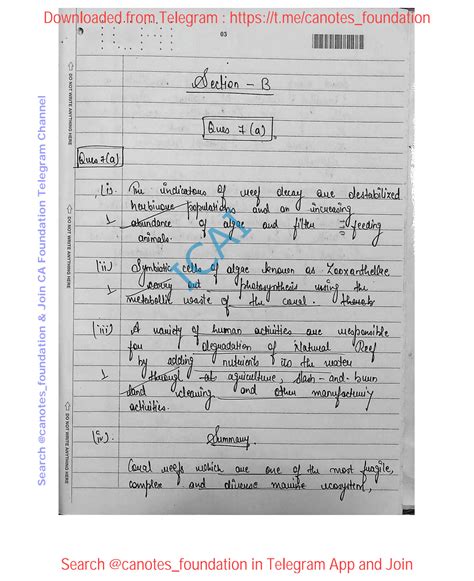 Downloaded from Telegram : https://t.me/canotes_foundation
03
Section - B
Ques 7 (a)
Ques 7(a)
(i). The indicators of reef decay are destabilized
herbivore populations and an increasing
1 abundance of algae and filter feeding
animals.
(ii) Symbiotic cells of algae known as Zooxanthellae
1 carry out photosynthesis using the
metabolic waste of the coral.
(iii) A variety of human activities are responsible
for degradation of Natural Reef
by adding nutrients to the water
1 through agriculture, slash-and-burn
land clearing and other manufacturing
activities.
(iv). Summary.
Coral reefs which are one of the most fragile,
complex and diverse marine ecosystem,
ICAI
DO NOT WRITE ANYTHING HERE
DO NOT WRITE ANYTHING HERE
DO NOT WRITE ANYTHING HERE
Search @canotes_foundation & Join CA Foundation Telegram Channel
Search @canotes_foundation in Telegram App and Join